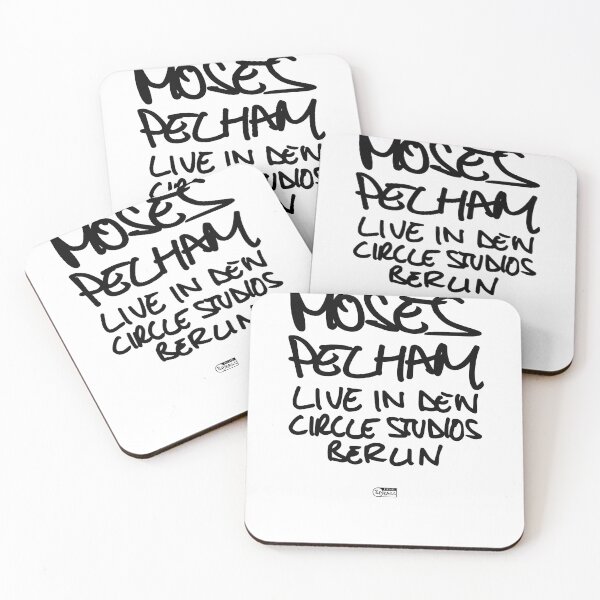 MOSES
PELHAM
LIVE IN DEN
CIRCLE STUDIOS
MOSES
PELHAM
LIVE IN DEN
CIRCLE STUDIOS
BERLIN
MOSES
PELHAM
LIVE IN DEN
CIRCLE STUDIOS
BERLIN
MOSES
PELHAM
LIVE IN DEN
CIRCLE STUDIOS
BERLIN